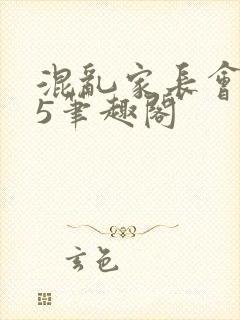 混亂家長會
5筆趣閣
玄色